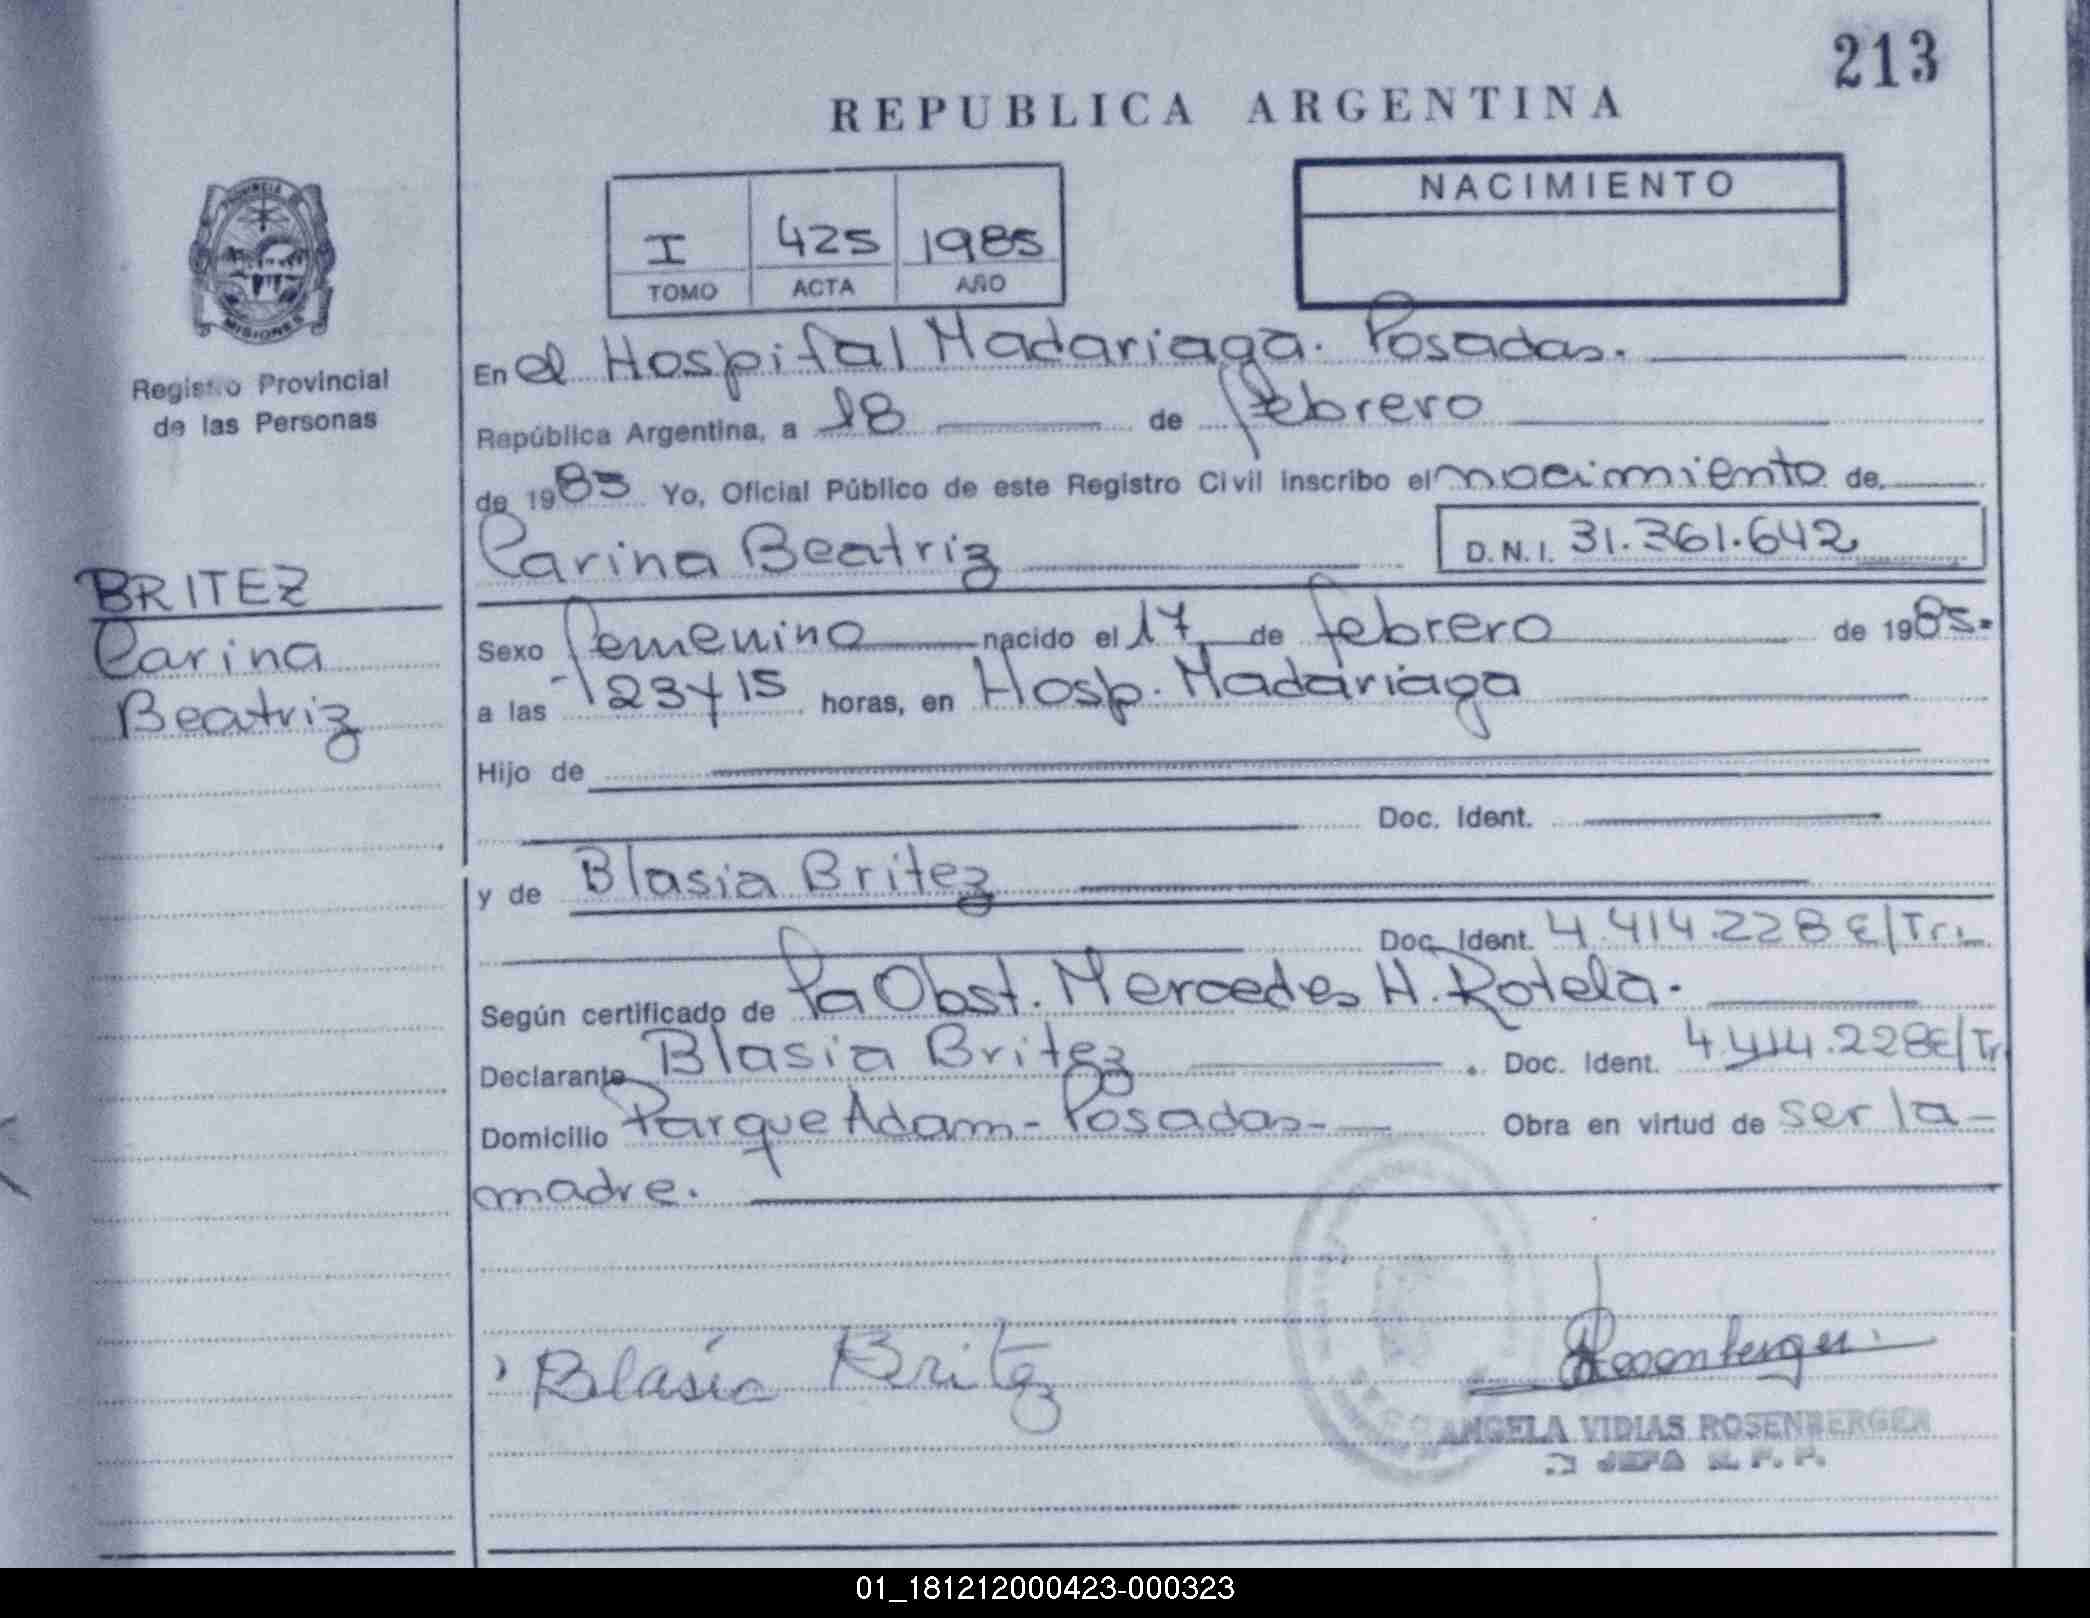 213
REPUBLICA ARGENTINA
PROVINCIA
MISIONES
Registro Provincial
de las Personas
I 425 1985
TOMO ACTA AÑO
NACIMIENTO
En el Hospital Madariaga. Posadas.
República Argentina, a 18 de febrero
de 1985 Yo, Oficial Público de este Registro Civil inscribo el nacimiento de
Carina Beatriz D.N.I. 31.361.642
BRITEZ
Carina
Beatriz
Sexo femenino nacido el 17 de febrero de 1985.
a las 23 y 15 horas, en Hosp. Madariaga
Hijo de
Doc. Ident.
y de Blasia Britez
Doc. Ident. 4.414.228 E/Tr.
Según certificado de la Obst. Mercedes H. Rotela.
Declarante Blasia Britez . Doc. Ident. 4.414.228 E/Tr
Domicilio Parque Adam - Posadas - Obra en virtud de ser la
madre.
Blasia Britez
Rosenberger
ANGELA VIDIAS ROSENBERGER
JEFA R. P. P.
01_181212000423-000323